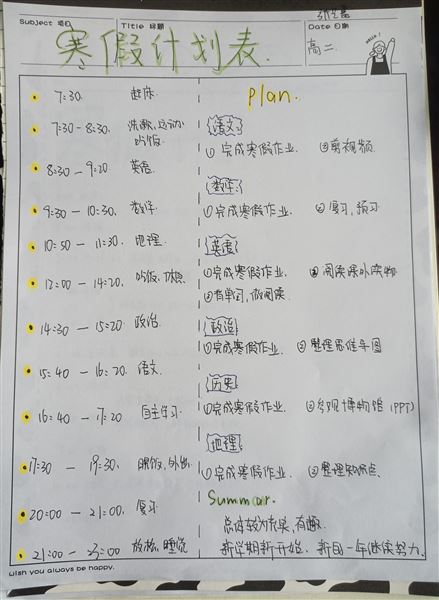 Subject 项目
Title 标题
Date 日期
高二
寒假计划表.
HELLO!
Plan.
7:30. 起床.
7:30-8:30. 洗漱,运动
吃饭
8:30-9:20 英语.
9:30-10:30. 数学.
10:50-11:30. 地理.
12:00-14:20. 吃饭,休息.
14:30-15:20 政治.
15:40-16:20. 语文.
16:40-17:20 自主学习.
17:30-19:30. 晚饭,外出.
20:00-21:00. 复习.
21:00-23:00 放松,睡觉
语文
①完成寒假作业. ②剪视频.
数学
①完成寒假作业. ②复习,预习.
英语
①完成寒假作业. ②阅读课外读物
③背单词,做阅读.
政治
①完成寒假作业. ②整理思维导图
历史
①完成寒假作业. ②参观博物馆(PPT)
地理
①完成寒假作业. ②整理知识点.
Summar.
总体较为充实,有趣.
新学期新开始. 新的一年继续努力.
wish you always be happy.